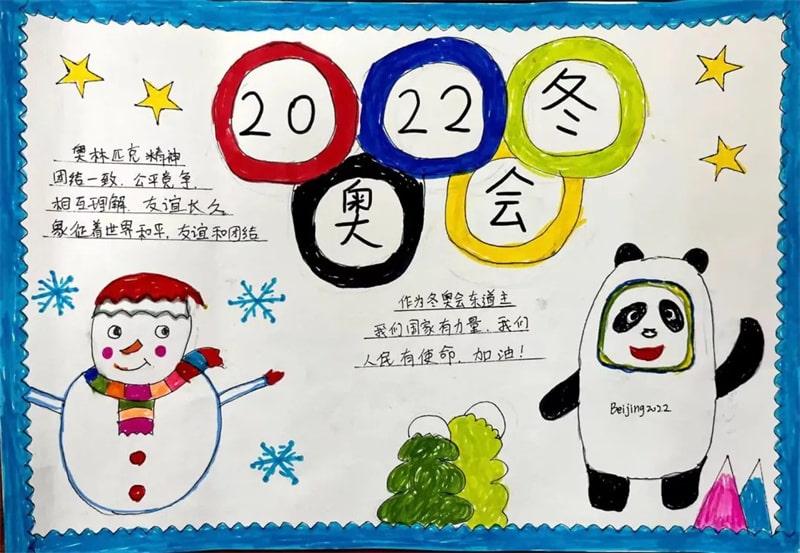 2022冬
奥会
奥林匹克精神
团结一致、公平竞争、
相互理解、友谊长久
象征着世界和平,友谊和团结
作为冬奥会东道主
我们国家有力量,我们
人民有使命,加油!
Beijing2022